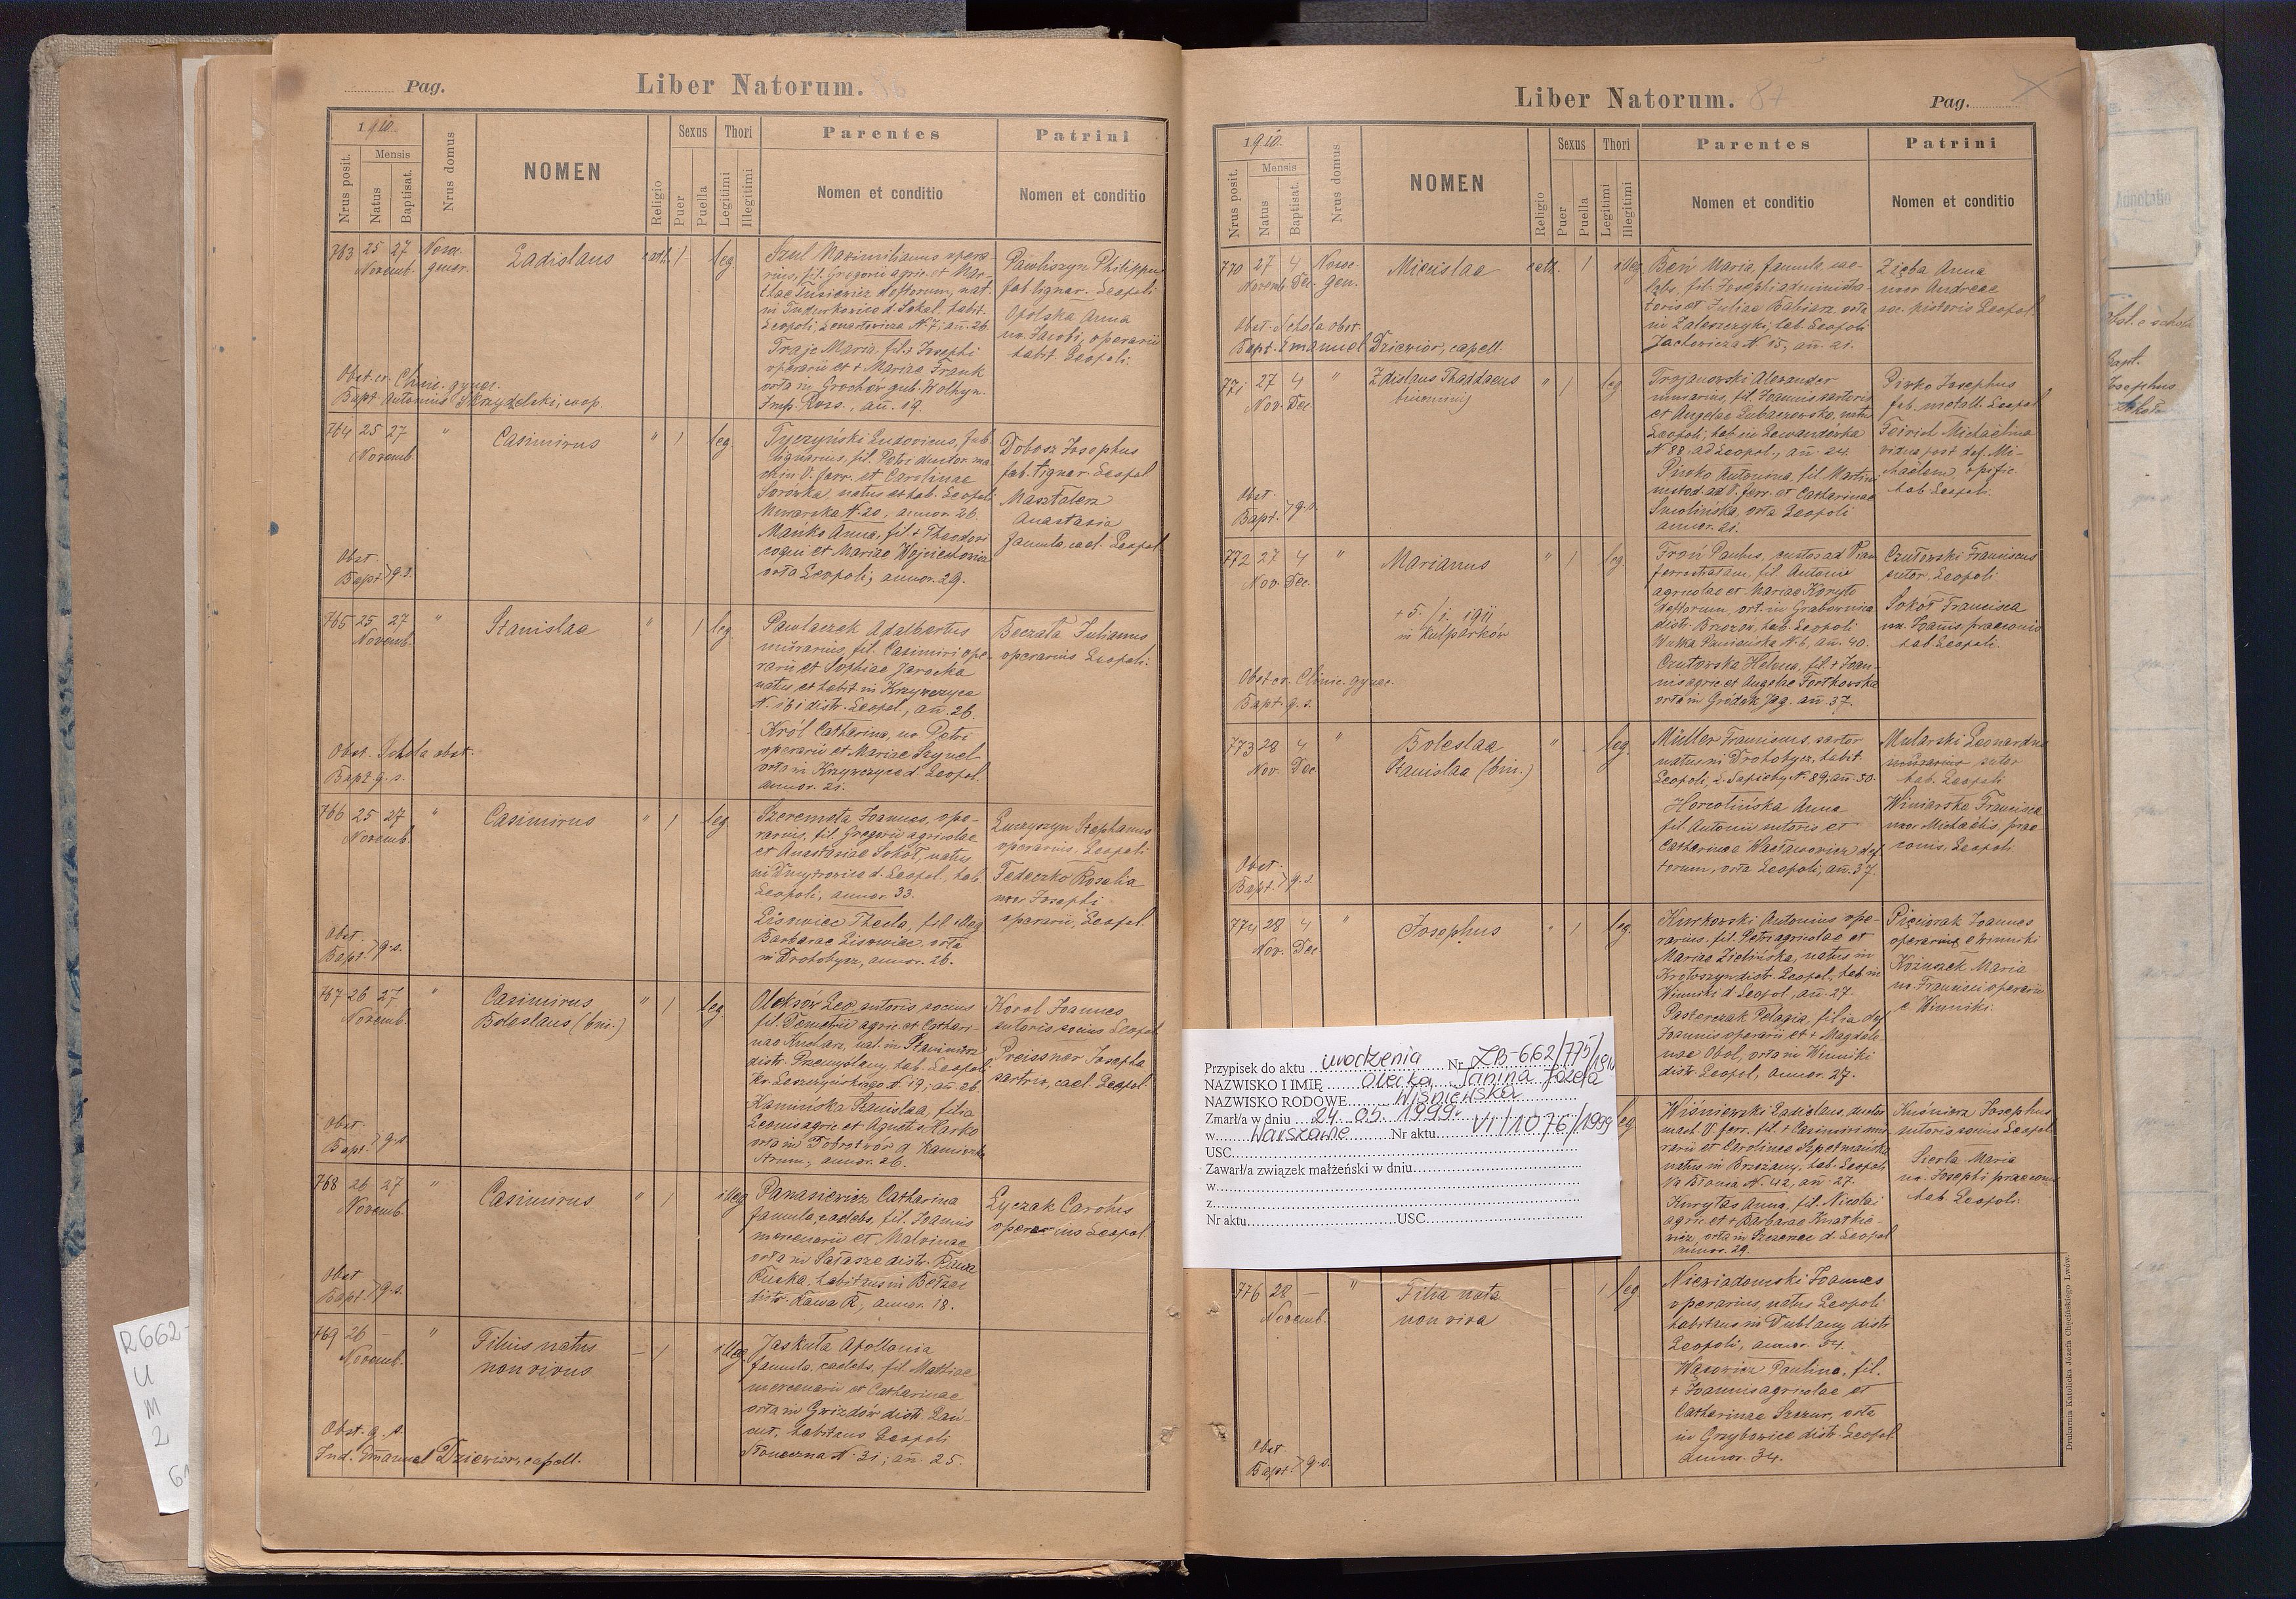 Pag.
Liber Natorum. 86
1910.
Mensis
Nrus posit.
Natus
Baptisat.
Nrus domus
NOMEN
Religio
Sexus
Puer
Puella
Thori
Legitimi
Illegitimi
Parentes
Nomen et conditio
Patrini
Nomen et conditio
763 25 27
Novemb.
Ladislaus
cath.
leg.
Szul Maximilianus opera-
rius, fil. Gregorii agric. et Mar-
natus
Leopoli, Lenartowicza N. 7, an. 26.
Traje Maria, fil. + Josephi
operarii et + Mariae Frank
orta in Grochów gub. Wolhyn.
Imp. Ross., an. 19.
Pawliszyn Philippus
fab. lignar. Leopoli
Opolska Anna
ux. Jacobi, operarii
habit. Leopoli.
Obst. ex Clinic. gynec.
Bapt. Antonius Skrzydelski, coop.
764 25 27 "
Novemb.
Casimirus
"
leg.
Tyczyński Ludovicus, fab.
lignarius, fil. Petri ductor. ma-
chin. V. ferr. et Carolinae
Surówka natus et hab. Leopoli
N. 20, annor. 26.
Mańko Anna, fil. + Theodori
coqui et Mariae Wojciechowicz
orta Leopoli, annor. 29.
Dobosz Josephus
fab. lignar. Leopol.
Masztalerz
Anastasia
famula, cael. Leopol.
Obst.
Bapt. q.s.
765 25 27 "
Novemb.
Stanislaa
"
leg.
Pawlaczek Adalbertus
murarius, fil. Casimiri ope-
rarii et Sophiae Jarocka
natus et habit. in Krzywczyce
N. 161 distr. Leopol., an. 26.
Król Catharina, ux. Petri
operarii et Mariae Szynel
orta in Krzywczyce d. Leopol.
annor. 21.
Beczała Julianus
operarius Leopoli.
Obst. Schola obst.
Bapt. q.s.
766 25 27 "
Novemb.
Casimirus
"
leg.
Szeremeta Joannes, ope-
rarius, fil. Gregorii agricolae
et Anastasiae Sokół, natus
in Dmytrowice d. Leopol., hab.
Leopoli, annor. 33.
Lisowiec Thecla, fil. illeg.
Barbarae Lisowiec, orta
in Drohobycz, annor. 26.
Stephanus
operarius, Leopoli
Fedeczko Rosalia
uxor Josephi
operarii, Leopol.
Obst.
Bapt. q.s.
767 26 27 "
Novemb.
Casimirus
Boleslaus (bin.)
"
leg.
Oleksów Leo, sutoris socius
fil. Demetrii agric. et Cathari-
nae Kucharz, nat. in Stanimirz
distr. Przemyślany, hab. Leopoli
Kr. Leszczyńskiego N. 19, an. 26.
Kamińska Stanislaa, filia
Leonis agric. et Agnetis Harko
orta in Dobrotwór d. Kamionka
Strum., annor. 26.
Korol Joannes
sutoris socius Leopol.
Preissner Josepha
sartrix, cael. Leopol.
Obst.
Bapt. q.s.
768 26 27 "
Novemb.
Casimirus
"
illeg.
Panasiewicz Catharina
famula, caelebs, fil. Joannis
mercenarii et Malvinae
orta in Sałasze distr. Rawa
Ruska, habitans in Bełzec
distr. Rawa R., annor. 18.
Łyczak Carolus
operarius Leopol.
Obst.
Bapt. q.s.
769 26 — "
Novemb.
Filius natus
non vivus
—
illeg.
Jaskuła Apollonia
famula, caelebs, fil. Mathiae
mercenarii et Catharinae
orta in Gwizdów distr. Łań-
cut, habitans Leopoli
Słoneczna N. 31, an. 25.
Obst. q. s.
Ind. Emanuel Dziewior, capell.
R662-
U
M
2
Liber Natorum. 87
Pag.
1910.
Mensis
Nrus posit.
Natus
Baptisat.
Nrus domus
NOMEN
Religio
Sexus
Puer
Puella
Thori
Legitimi
Illegitimi
Parentes
Nomen et conditio
Patrini
Nomen et conditio
770 27 4
Novemb. Dec.
gen.
Miecislaa
cath.
illeg.
Beń Maria, famula, cae-
lebs, fil. Josephi administra-
toris et Juliae Babiarz, orta
in Zaleszczyki, hab. Leopoli
Jachowicza N. 15, an. 21.
Zięba Anna
uxor Andreae
soc. pistoris Leopol.
Obst. Schola obst.
Bapt. Emanuel Dziewior, capell.
771 27 4 "
Nov. Dec.
Zdislaus Thaddaeus
"
leg.
Trojanowski Alexander
murarius, fil. Joannis sartoris
et Angelae Lubaczewska, natus
Leopoli, hab. in Lewandówka
N. 88 ad Leopol., an. 24.
Piwko Antonina, fil. Martini
custod. ad V. ferr. et Catharinae
Smolińska, orta Leopoli
annor. 21.
Piwko Josephus
fab. metall. Leopol.
Michaëlina
vidua post def. Mi-
chaëlem, opific.
hab. Leopoli.
Obst.
Bapt. q.s.
772 27 4 "
Nov. Dec.
Marianus
+ 5./I. 1911
in Kulparków
"
leg.
Froń Paulus, custos ad Viam
ferrostratam, fil. Antonii
agricolae et Mariae Koryto
deftorum, ort. in Grabownica
distr. Brzozów, hab. Leopoli
Wulka Panieńska N. 6, an. 40.
Czutowska Helena, fil. + Joan-
nis agric. et Angelae Fortkowska
orta in Gródek Jag. an. 37.
Czutowski Franciscus
sutor, Leopoli
Sokół Francisca
ux. Joannis, praeconis
hab. Leopoli.
Obst. ex Clinic. gynaec.
Bapt. q.s.
773 28 4 "
Nov. Dec.
Boleslaa
Stanislaa (bin.)
"
leg.
Müller Franciscus, sartor
natus in Drohobycz, habit.
Leopoli, L. Sapiehy N. 89, an. 30.
Horwolińska Anna
fil. Antonii sutoris et
Catharinae Wacławowicz def-
torum, orta Leopoli, an. 37.
Mularski Leonardus
murarius sutor
hab. Leopoli
Winiarska Francisca
uxor Michaëlis, prae-
conis, Leopoli.
Obst.
Bapt. q.s.
774 28 4 "
Nov. Dec.
Josephus
"
leg.
Kurkowski Antonius ope-
rarius, fil. Petri agricolae et
Mariae Zielińska, natus in
Krotoszyn distr. Leopol., hab. in
Winniki d. Leopol., an. 27.
Pasterczak Pelagia, filia def.
Joannis operarii et + Magdale-
nae Obol, orta in Winniki
distr. Leopol., annor. 27.
Pięciorak Joannes
operarius e Winniki
Kożuszek Maria
ux. Francisci operarii
e Winniki.
Przypisek do aktu urodzenia Nr ZB-662/775/1910
NAZWISKO I IMIĘ Olecka Janina Józefa
NAZWISKO RODOWE Wiśniewska
Zmarł/a w dniu 24.05.1999r.
w Warszawie Nr aktu VI/1076/1999
USC
Zawarł/a związek małżeński w dniu
w
z
Nr aktu USC
leg.
Wiśniewski Ladislaus, ductor
mach. V. ferr., fil. + Casimiri mu-
rarii et Carolinae Szpetmańska
natus in Brzeżany, hab. Leopoli
Na Błonie N. 42, an. 27.
Kuryłas Anna, fil. Nicolai
agric. et + Barbarae Knatkie-
wicz, orta in Szczerzec d. Leopol.
annor. 29.
Kuśnierz Josephus
sutoris socius Leopol.
Sierla Maria
ux. Josephi praeconis
hab. Leopoli.
776 28 — "
Novemb.
Filia nata
non viva
—
leg.
Niewiadomski Joannes
operarius, natus Leopoli
habitans in Dublany distr.
Leopoli, annor. 34.
Wąsowicz Paulina, fil.
+ Joannis agricolae et
Catharinae Szczur, orta
in Grzybowice distr. Leopol.
annor. 34.
Obst.
Bapt. q.s.
Drukarnia Katolicka Józefa Chęcińskiego Lwów.
Adnotatio
Obst. e schola
Bapt.
Josephus